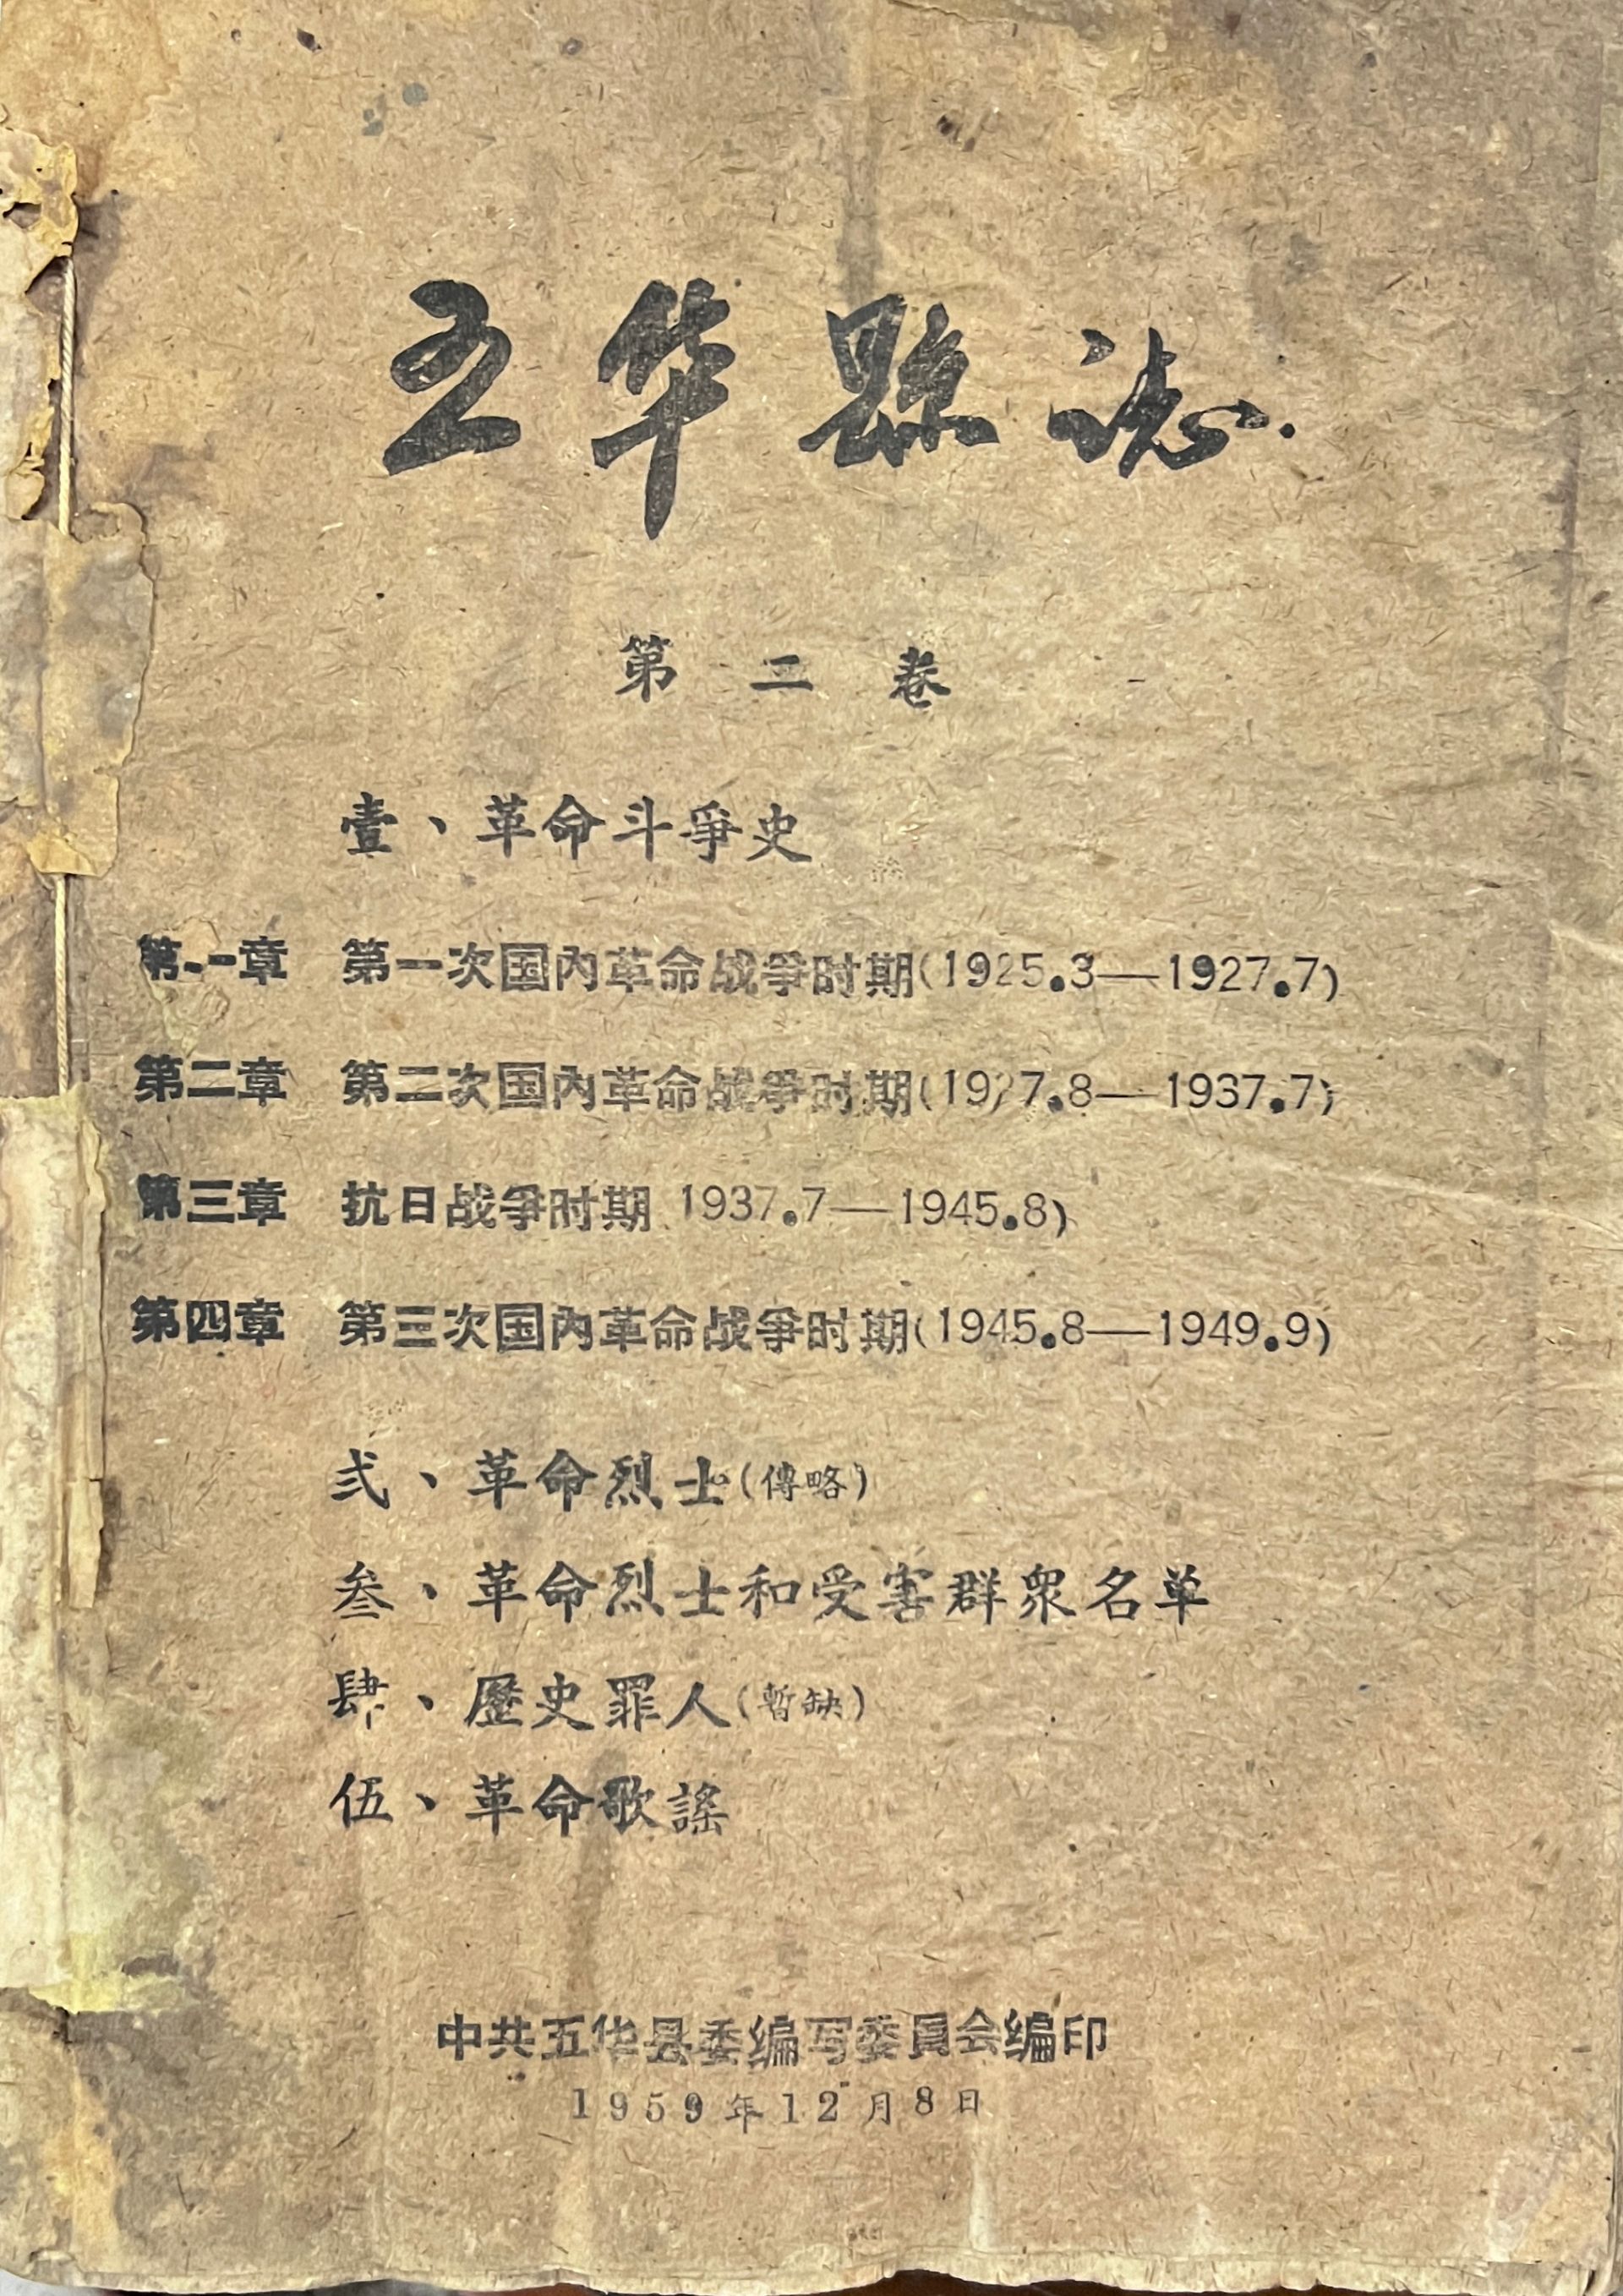 五华縣誌.
第二卷
壹、革命斗爭史
第一章 第一次国内革命战爭时期(1925.3—1927.7)
第二章 第二次国内革命战爭时期(1927.8—1937.7)
第三章 抗日战爭时期 1937.7—1945.8)
第四章 第三次国内革命战爭时期(1945.8—1949.9)
弍、革命烈士(傳略)
叁、革命烈士和受害群衆名单
肆、歷史罪人(暫缺)
伍、革命歌謠
中共五华县委编写委員会编印
1959年12月8日